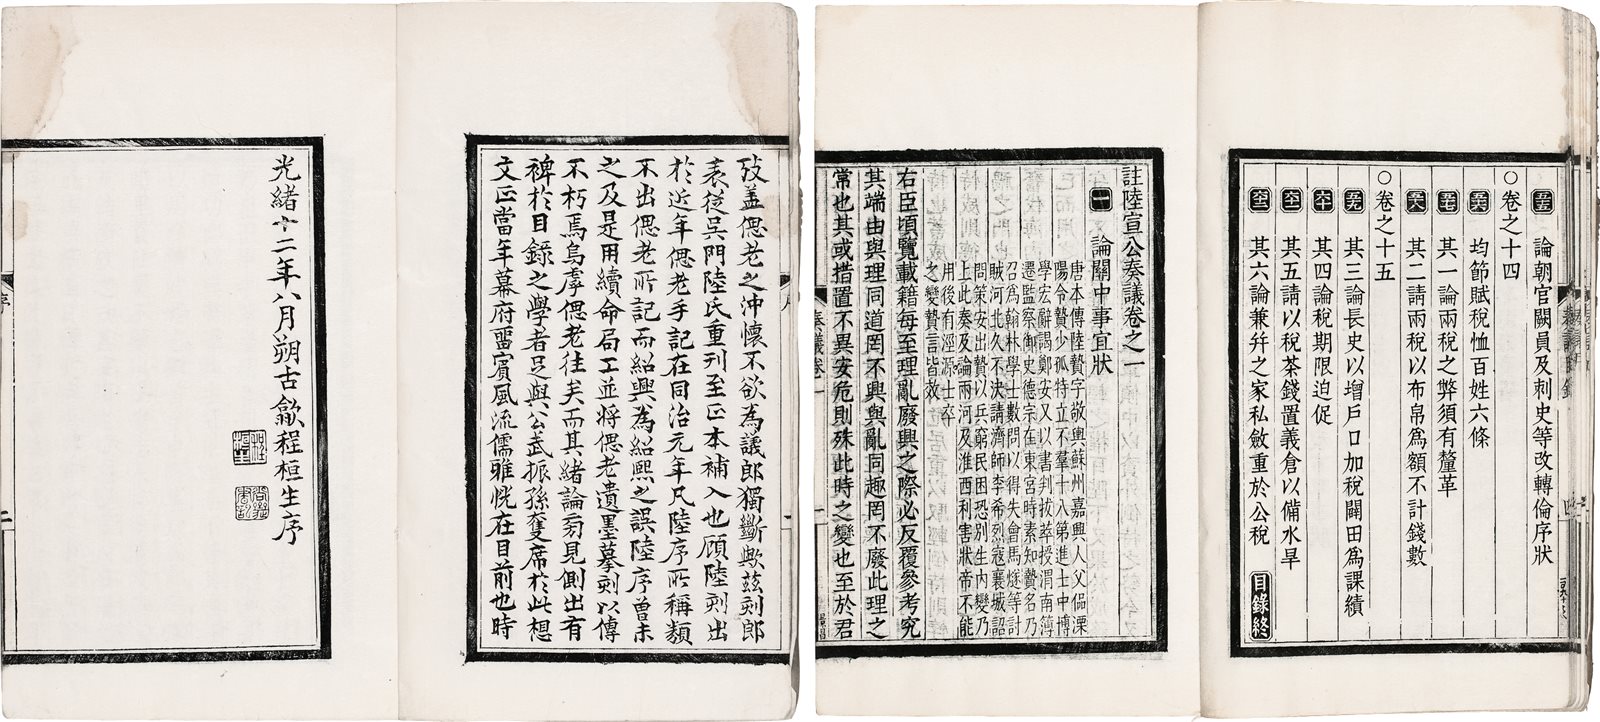 攷蓋偲老之沖懷不欲為議郎獨斷歟茲刻郎
表從吳門陸氏重刊至正本補入也顧陸刻出
於近年偲老手記在同治元年凡陸序所稱類
不出偲老所記而紹興為紹熙之誤陸序曾未
之及是用續命局工並將偲老遺墨摹刻以傳
不朽焉烏虖偲老往矣而其緒論芴見側出有
裨於目錄之學者足與公武振孫奪席於此想
文正當年幕府畱賓風流儒雅恍在目前也時
光緒十二年八月朔古歙程桓生序
五五 論朝官闕員及刺史等改轉倫序狀
○卷之十四
五六 均節賦稅恤百姓六條
五七 其一論兩稅之弊須有釐革
五八 其二請兩稅以布帛爲額不計錢數
五九 其三論長史以增戶口加稅闢田爲課績
○卷之十五
六十 其四論稅期限迫促
六一 其五請以稅茶錢置義倉以備水旱
六二 其六論兼幷之家私斂重於公稅 目錄終
註陸宣公奏議卷之一
一 論關中事宜狀
唐本傳陸贄字敬輿蘇州嘉興人父偘溧
陽令贄少孤特立不羣十八第進士中博
學宏辭調鄭安又以書判拔萃授渭南簿
遷監察御史德宗在東宮時素知贄名乃
召爲翰林學士數問以得失會馬燧等討
賊河北久不決請濟師李希烈寇襄城詔
問策安出贄以兵窮民困恐別生內變乃
上此奏及論兩河及淮西利害狀帝不能
用後有涇源士卒
之變贄言皆效
右臣頃覽載籍每至理亂廢興之際必反覆參考究
其端由與理同道罔不興與亂同趣罔不廢此理之
常也其或措置不異安危則殊此時之變也至於君